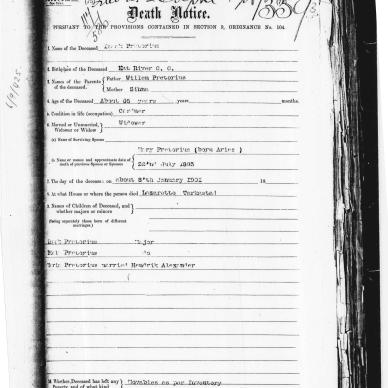 Death Notice.
PURSUANT TO THE PROVISIONS CONTAINED IN SECTION 9, ORDINANCE No. 104.
1. Name of the Deceased Pretorius
2. Birthplace of the Deceased Mat River C. C.
3. Names of the Parents of the deceased. Father Willem Pretorius
Mother
4. Age of the Deceased About 65 years years months.
5. Condition in life (occupation),
6. Married or Unmarried, Widower or Widow Widower
(a) Name of Surviving Spouse
Mary Pretorius (born Aries)
b. Name or names and approximate date of death of previous Spouse or Spouses
22nd July 1893
7. The day of the decease: on about January 1901 18
8. At what House or where the person died Lazarette
9. Names of Children of Deceased, and whether majors or minors
(Stating separately those born of different marriages.)
Pretorius Major
Pretorius do
Pretorius married Hendrik Alexander
10. Whether Deceased has left any Property, and of what kind Movables as per Inventory